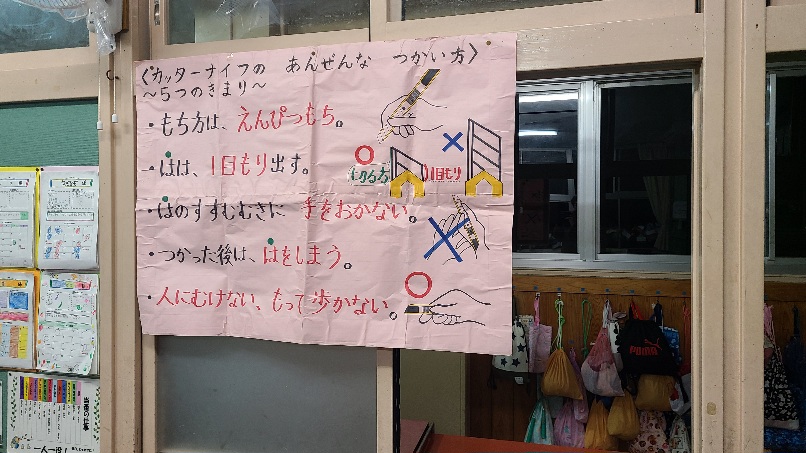 〈カッターナイフの あんぜんな つかい方〉
～5つのきまり～
・もち方は、えんぴつもち。
・はは、1目もり出す。
1目もり
・はのすすむむきに 手をおかない。
・つかった後は、はをしまう。
・人にむけない、もって歩かない。
PUMA
一人一役!